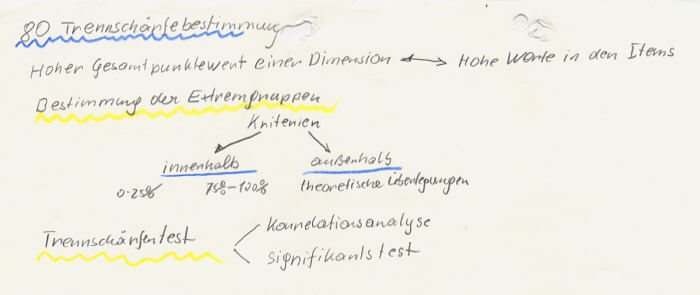 80 Trennschärfebestimmung
Hoher Gesamtpunktewert einer Dimension ⟷ Hohe Werte in den Items
Bestimmung der Extremgruppen
Kriterien
innenhalb außenhalb
0-25% 75%-100% theoretische Überlegungen
Trennschärfentest
Korrelationsanalyse
Signifikantstest